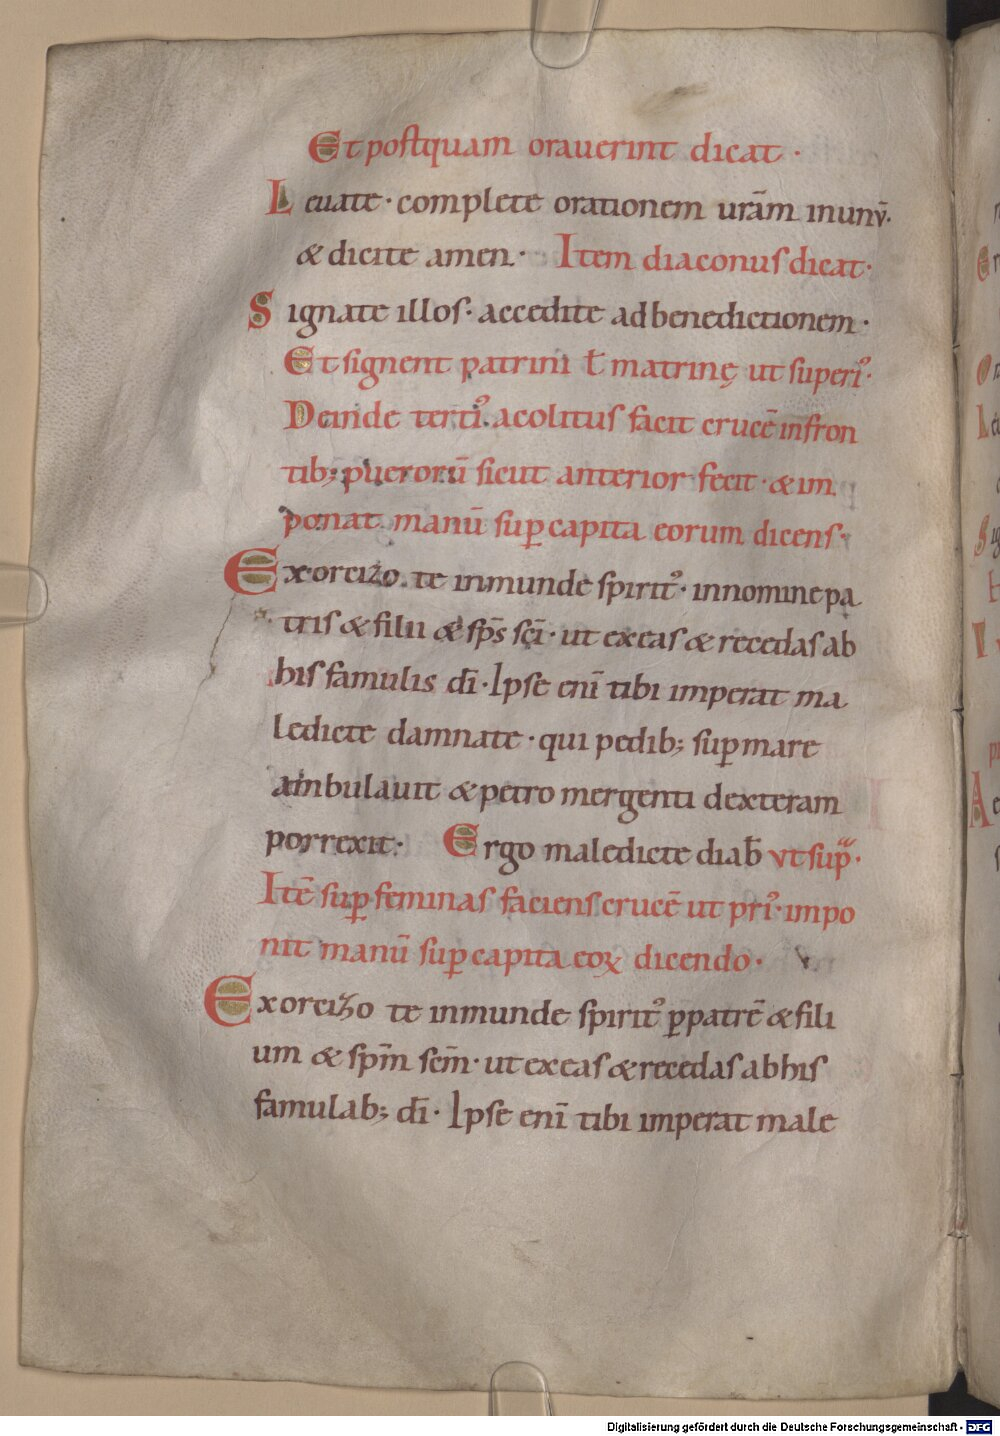 Et postquam orauerint dicat ·
Leuate · complete orationem urām inunū·
& dicite amen · Item diaconus dicat ·
Signate illos · accedite ad benedictionem ·
Et signent patrini ƚ matrinę ut superi᾿·
Deinde terti᾿· acolitus facit crucē in fron
tib; puerorū sicut anterior fecit · & im
ponat manū suꝑ capita eorum dicens ·
Exorcizo te inmunde spirit᾿· in nomine pa
tris & filii & sp̄s sc̄i · ut exeas & recedas ab
his famulis dī · Ipse enī tibi imperat ma
ledicte damnate · qui pedib; suꝑ mare
ambulauit & petro mergenti dexteram
porrexit · Ergo maledicte diab̄ vt sup̄ ·
Itē suꝑ feminas faciens crucē ut pri᾿· impo
nit manū suꝑ capita eoꝝ dicendo ·
Exorcizo te inmunde spirit᾿ ꝑ patrē & fili
um & sp̄m sc̄m · ut exeas & recedas ab his
famulab; dī · Ipse enī tibi imperat male
Digitalisierung gefördert durch die Deutsche Forschungsgemeinschaft - DFG